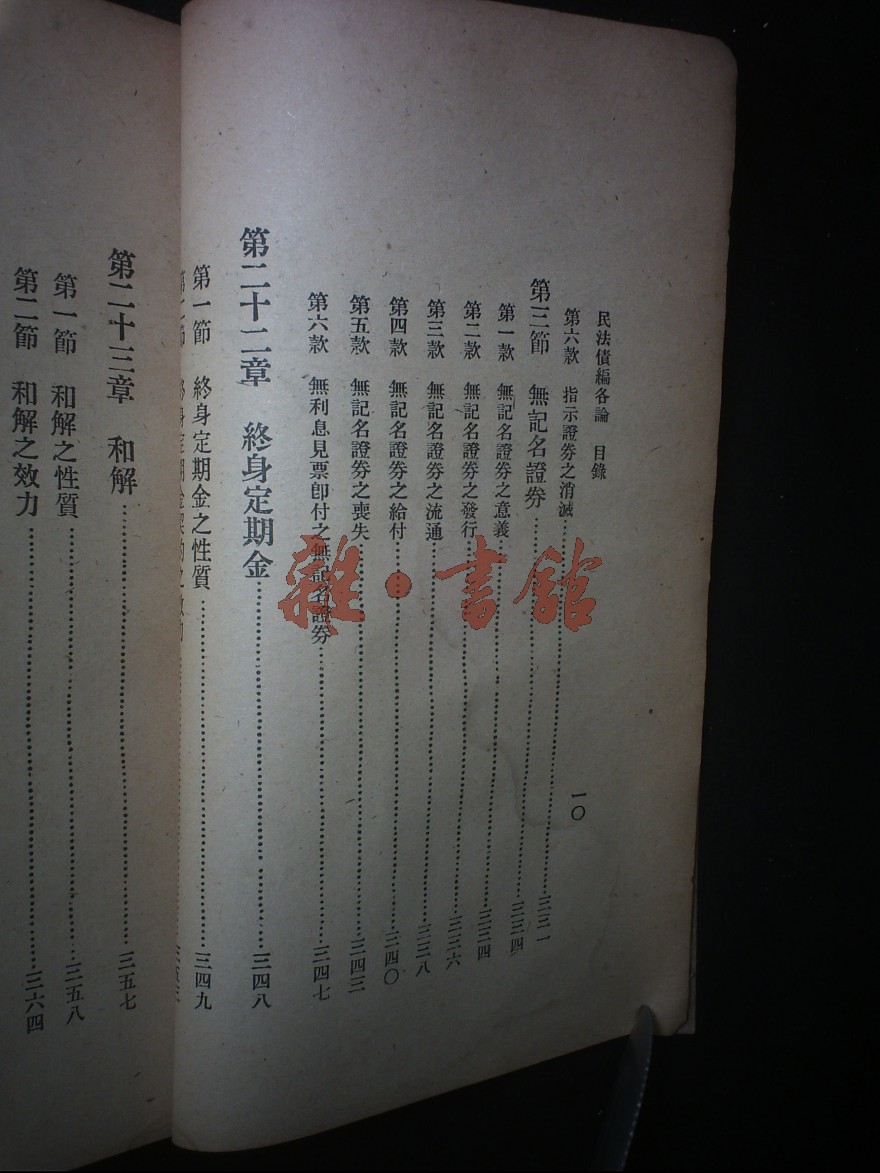 民法債編各論 目錄 一〇
第六款 指示證券之消滅……三三一
第三節 無記名證券……三三四
第一款 無記名證券之意義……三三四
第二款 無記名證券之發行……三三六
第三款 無記名證券之流通……三三八
第四款 無記名證券之給付……三四〇
第五款 無記名證券之喪失……三四三
第六款 無利息見票卽付之無記名證券……三四七
第二十二章 終身定期金……三四八
第一節 終身定期金之性質……三四九
第二節 終身定期金契約之效力
第二十三章 和解……三五七
第一節 和解之性質……三五八
第二節 和解之效力……三六四
雜·書館